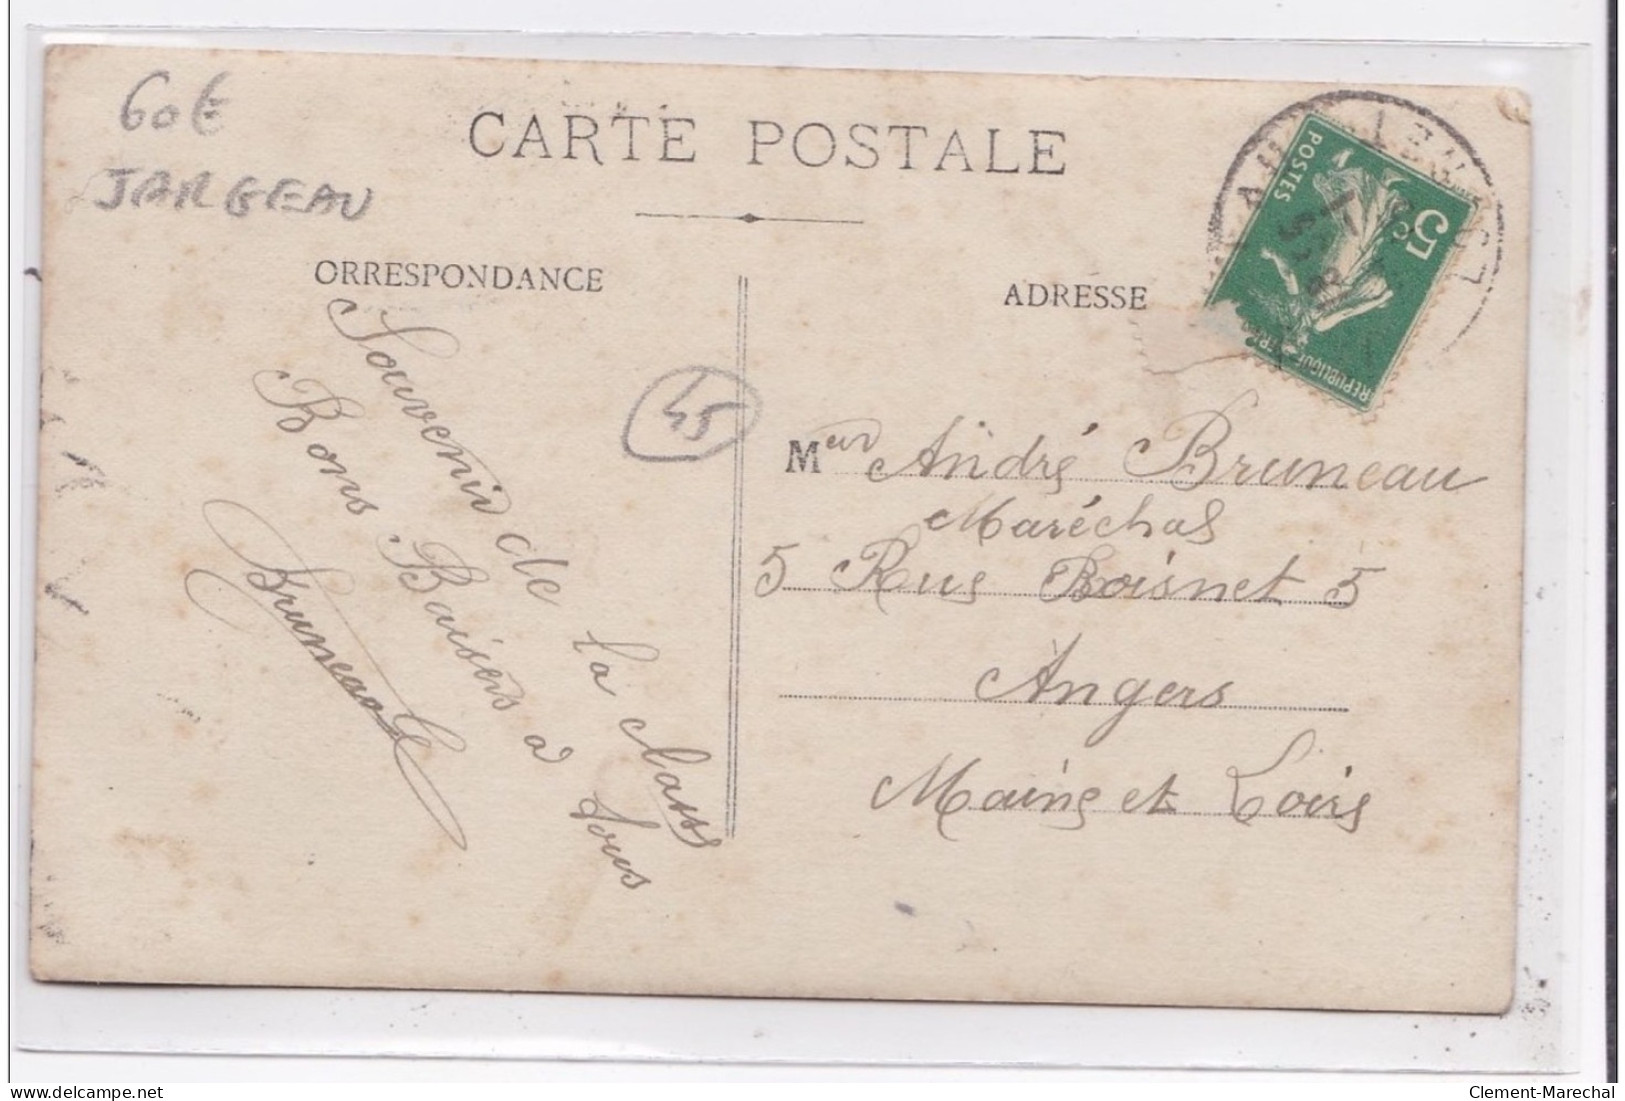 60€
JARGEAU
CARTE POSTALE
ORRESPONDANCE
ADRESSE
POSTES
5c
REPUBLIQUE
45
Souvenir de la classe
Bons Baisers à tous
Bruneau
Meur André Bruneau
Maréchal
5 Rue Boisnet 5
Angers
Maine et Loire
delcampe.net
Clement-Marechal